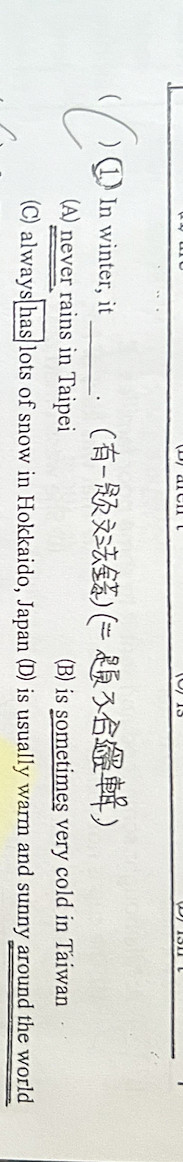 ( ) 1 In winter, it ______. (有一題文法錯)(二題不合邏輯)
(A) never rains in Taipei (B) is sometimes very cold in Taiwan
(C) always has lots of snow in Hokkaido, Japan (D) is usually warm and sunny around the world